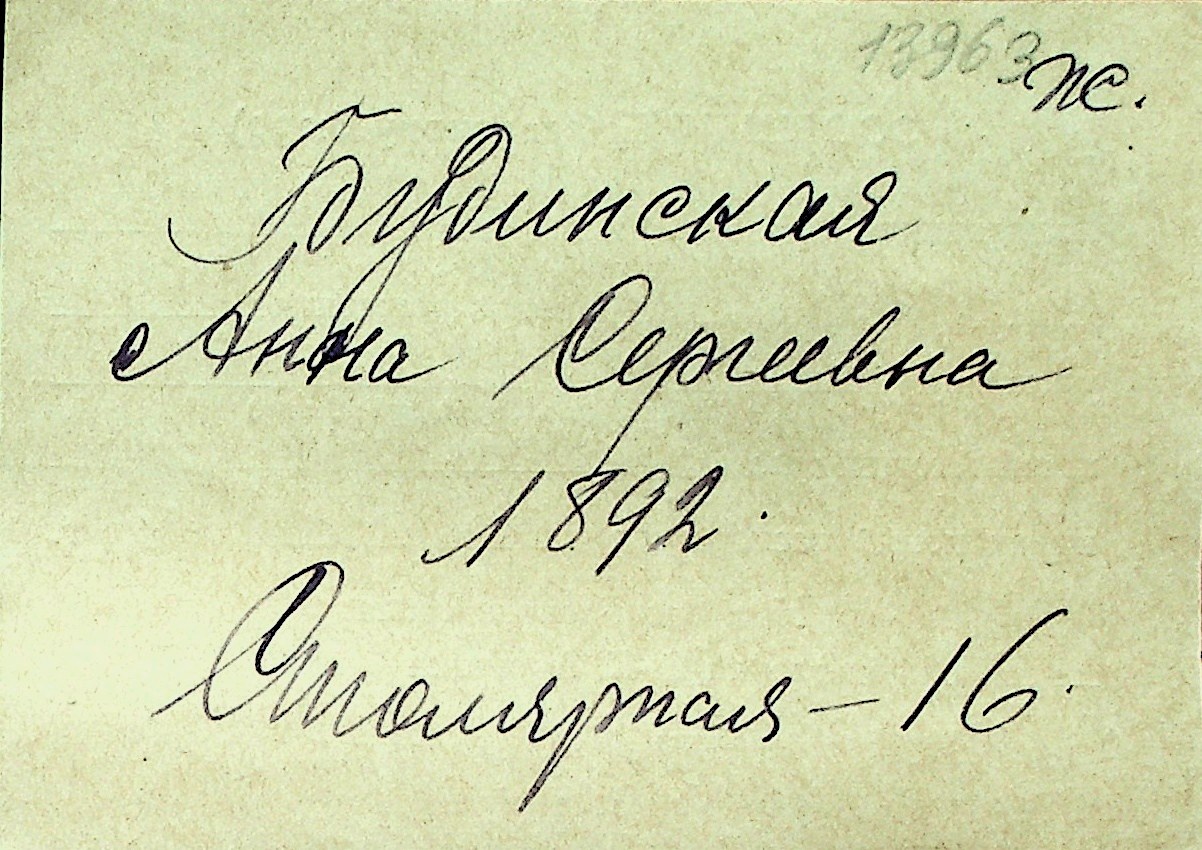 13963
ж.
Будинская
Анна Сергеевна
1892.
Столярная – 16.